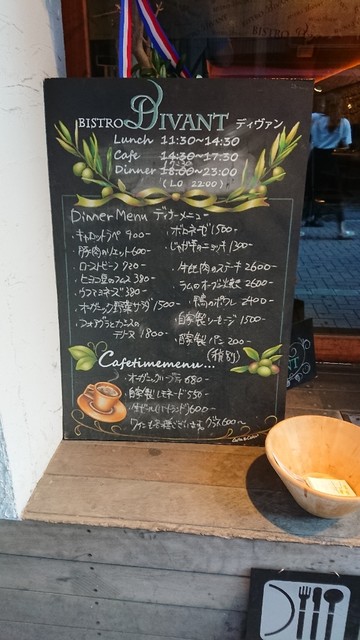 BISTRO DIVANT ディヴァン
Lunch 11:30~14:30
Cafe 14:30~17:30
17:30
Dinner 18:00~23:00
(L.O 22:00)
Dinner Menu ディナーメニュー
・キャロットラペ 900-
・豚肉のリエット 600-
・ローストビーフ 920-
・ヒヨコ豆のフムス 380-
・ウフマヨネーズ 380-
・オーガニック野菜サラダ 1500-
・フォアグラと
テリーヌ 1800-
・ボロネーゼ 1500-
・じゃが芋のニョッキ 1300-
・牛ヒレ肉のステーキ 2600-
・ラムのオーブン焼き 2600-
・鴨のポワレ 2400-
・自家製ソーセージ 1500-
・自家製パン 200-
(税別)
Cafetimemenu...
・オーガニックコーヒー 680-
・自家製レモネード 550-
600-
・ワインもご用意ございます。グラス 600~